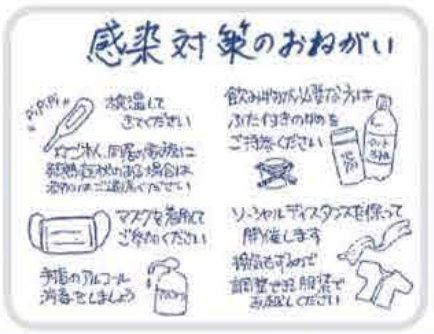 感染対策のおねがい
"PiPiPi"
検温して
きてください
ご本人、同居の家族に
発熱症状のある場合は
ご遠慮ください
マスクを着用して
ご参加ください
手指のアルコール
消毒をしましょう
飲み物が必要な方は
ふた付きのものを
ご持参ください
ソーシャルディスタンスを保って
開催します
換気をするので
調整できる服装で
お越しください